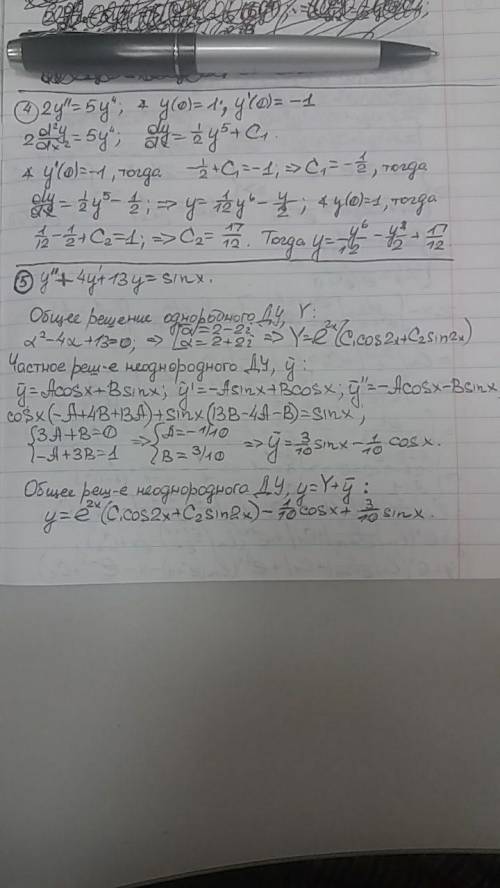 ④ 2y''=5y⁴; ∢ y(0)=1; y'(0)=-1
2 d²y/dx²=5y⁴; dy/dx=1/2 y⁵+C₁.
∢ y'(0)=-1, тогда -1/2+C₁=-1; ⇒ C₁=-1/2, тогда
dy/dx=1/2 y⁵-1/2; ⇒ y=1/12 y⁶-y/2; ∢ y(0)=1, тогда
1/12-1/2+C₂=1; ⇒ C₂=17/12. Тогда y=y⁶/12-y²/2+17/12.
⑤ y''+4y'+13y=sinx.
Общее решение однородного ДУ, Y:
α²-4α+13=0; ⇒ [α=2-2i α=2+2i ⇒ Y=e^2x(C₁cos2x+C₂sin2x)
Частное реш-е неоднородного ДУ, ȳ:
ȳ=Acosx+Bsinx; ȳ'=-Asinx+Bcosx; ȳ''=-Acosx-Bsinx
cosx(-A+4B+13A)+sinx(13B-4A-B)=sinx;
{3A+B=0 -A+3B=1 ⇒ {A=-1/10 B=3/10 ⇒ ȳ=3/10 sinx-1/10 cosx.
Общее реш-е неоднородного ДУ, y=Y+ȳ:
y=e^2x(C₁cos2x+C₂sin2x)-1/10 cosx+3/10 sinx.